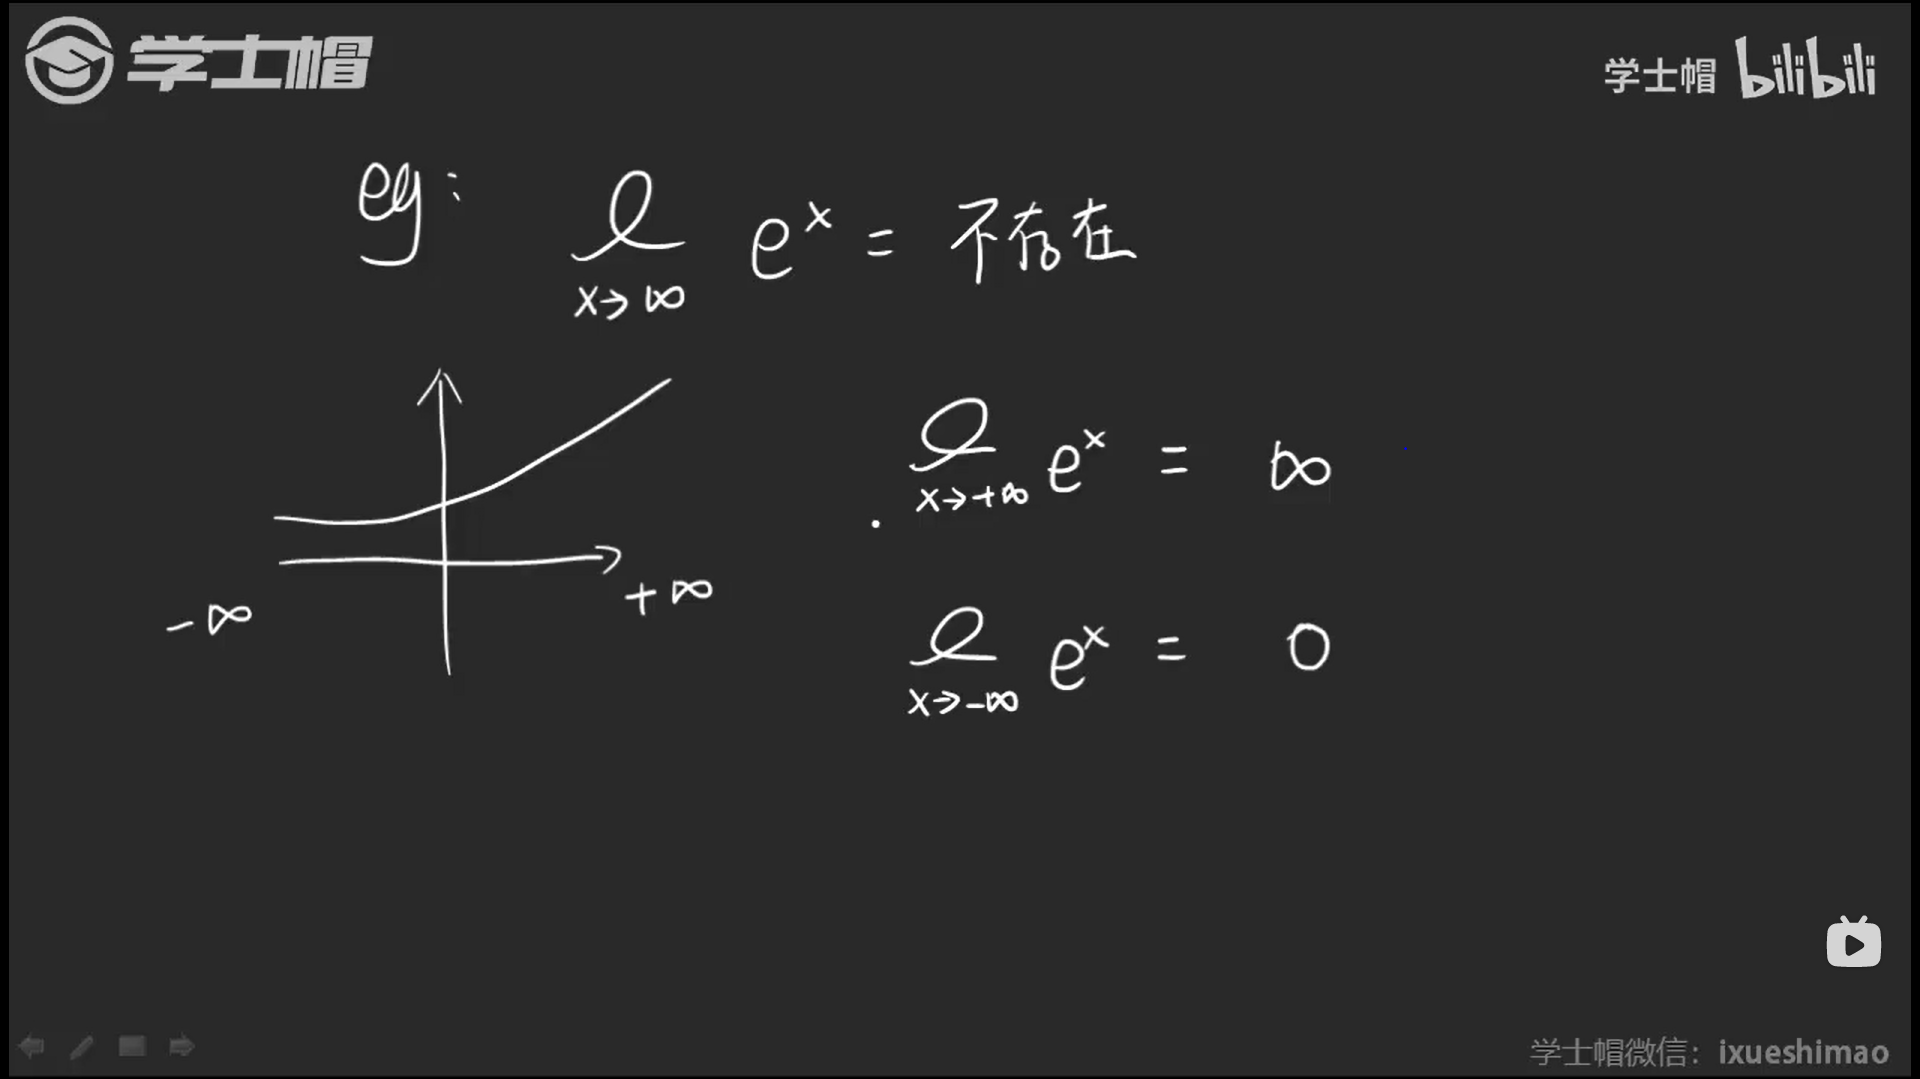 学士帽
学士帽 bilibili
eg: l e^x = 不存在
x→∞
l e^x = ∞
x→+∞
+∞
-∞
l e^x = 0
x→-∞
学士帽微信：ixueshimao